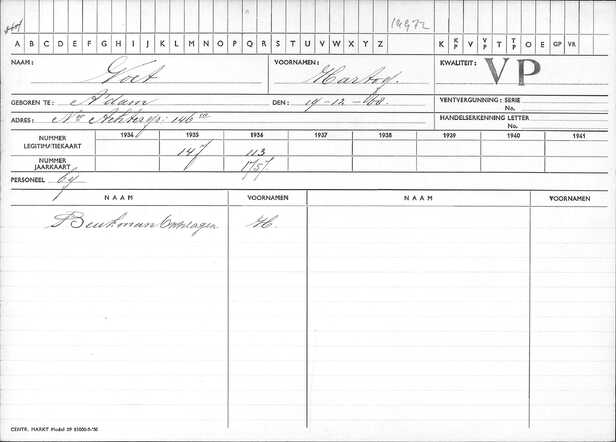 19972
A B C D E F G H I J K L M N O P Q R S T U V W X Y Z K KP V VP T TP O E GP VR
NAAM: Voet VOORNAMEN: Hartog. KWALITEIT: VP
GEBOREN TE: A'dam DEN: 19-12-68. VENTVERGUNNING: SERIE
No.
ADRES: Nwe Achtergr: 146 HANDELSERKENNING LETTER
No.
NUMMER LEGITIMATIEKAART 1934 1935 1936 1937 1938 1939 1940 1941
147 113
NUMMER JAARKAART 1757
PERSONEEL
NAAM VOORNAMEN NAAM VOORNAMEN
Beukman H.
CENTR. MARKT Model 59